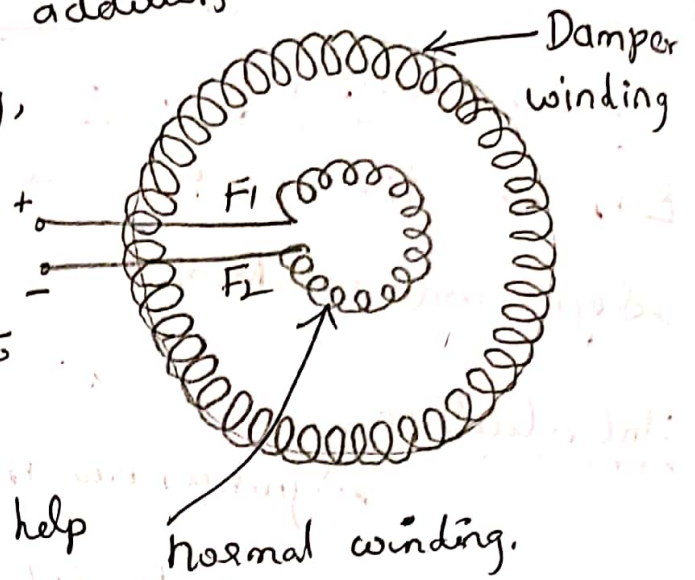 Damper
winding
+
F1
F2
-
help
normal winding.